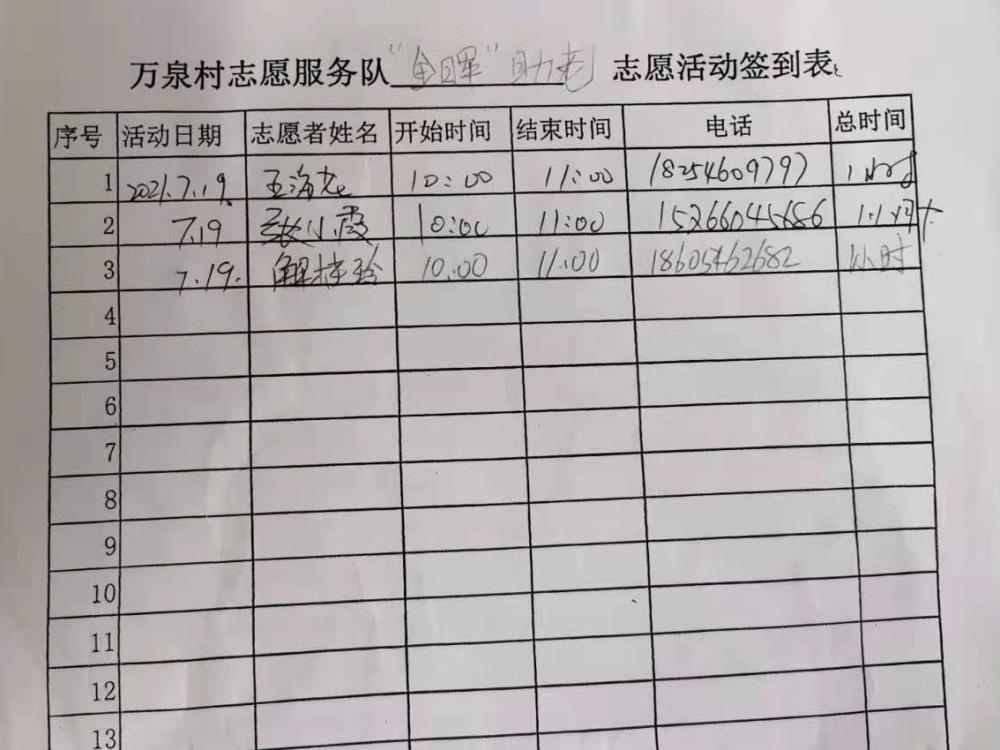 万泉村志愿服务队“金晖”助老 志愿活动签到表
序号 活动日期 志愿者姓名 开始时间 结束时间 电话 总时间
1 2021.7.19. 王海龙 10:00 11:00 18254609797 1小时
2 7.19 张小霞 10:00 11:00 15266045686
3 7.19. 解 10:00 11:00 18605462682 1小时
4
5
6
7
8
9
10
11
12
13